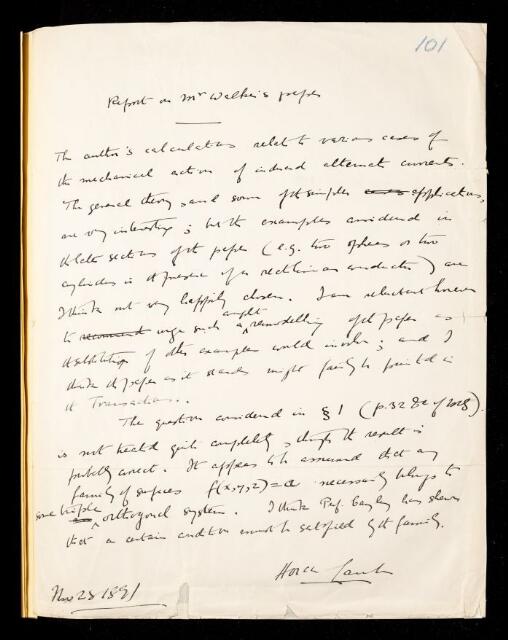 101
Report on Mr Walker's paper
The author's calculations relate to various cases of
the mechanical action of induced alternate currents.
The general theory, and some of the simpler cases applications,
are very interesting; but the examples considered in
the later sections of the paper (e.g. two spheres or two
cylinders in the presence of a rectilinear conductor) are
I think not very happily chosen. I am reluctant however
to recommend urge such a remodelling of the paper as
the substitution of other examples would involve; and I
think the paper as it stands might fairly be printed in
the Transactions.
The question considered in § 1 (p. 32 &c of MS)
is not treated quite completely, though the result is
probably correct. It appears to be assumed that any
family of surfaces f(x,y,z)=a necessarily belongs to
some triple orthogonal system. I think Prof. Cayley has shewn
that a certain condition must be satisfied by the family.
Horace Lamb
Nov 28 1891